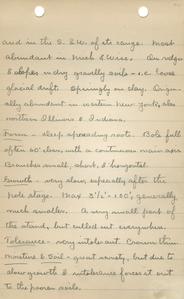 and in the S. & W. of its range. Most
abundant in Mich & Wisc. On ridges
& slopes in dry gravelly soils - i.e. loose
glacial drift. Sparingly on clay. Origin-
ally abundant in western New York, also
northern Illinois & Indiana.
Form - deep spreading roots. Bole full
often 60' clear, with a continuous main axis
Branches small, short, & horizontal.
Growth - very slow, especially after the
pole stage. Max 3½' x 100', generally
much smaller. A very small part of
the stand, but culled out everywhere.
Tolerance - very intolerant. Crown thin
Moisture & Soil - great variety, but due to
slow growth & intolerance forced out
to the poorer soils.